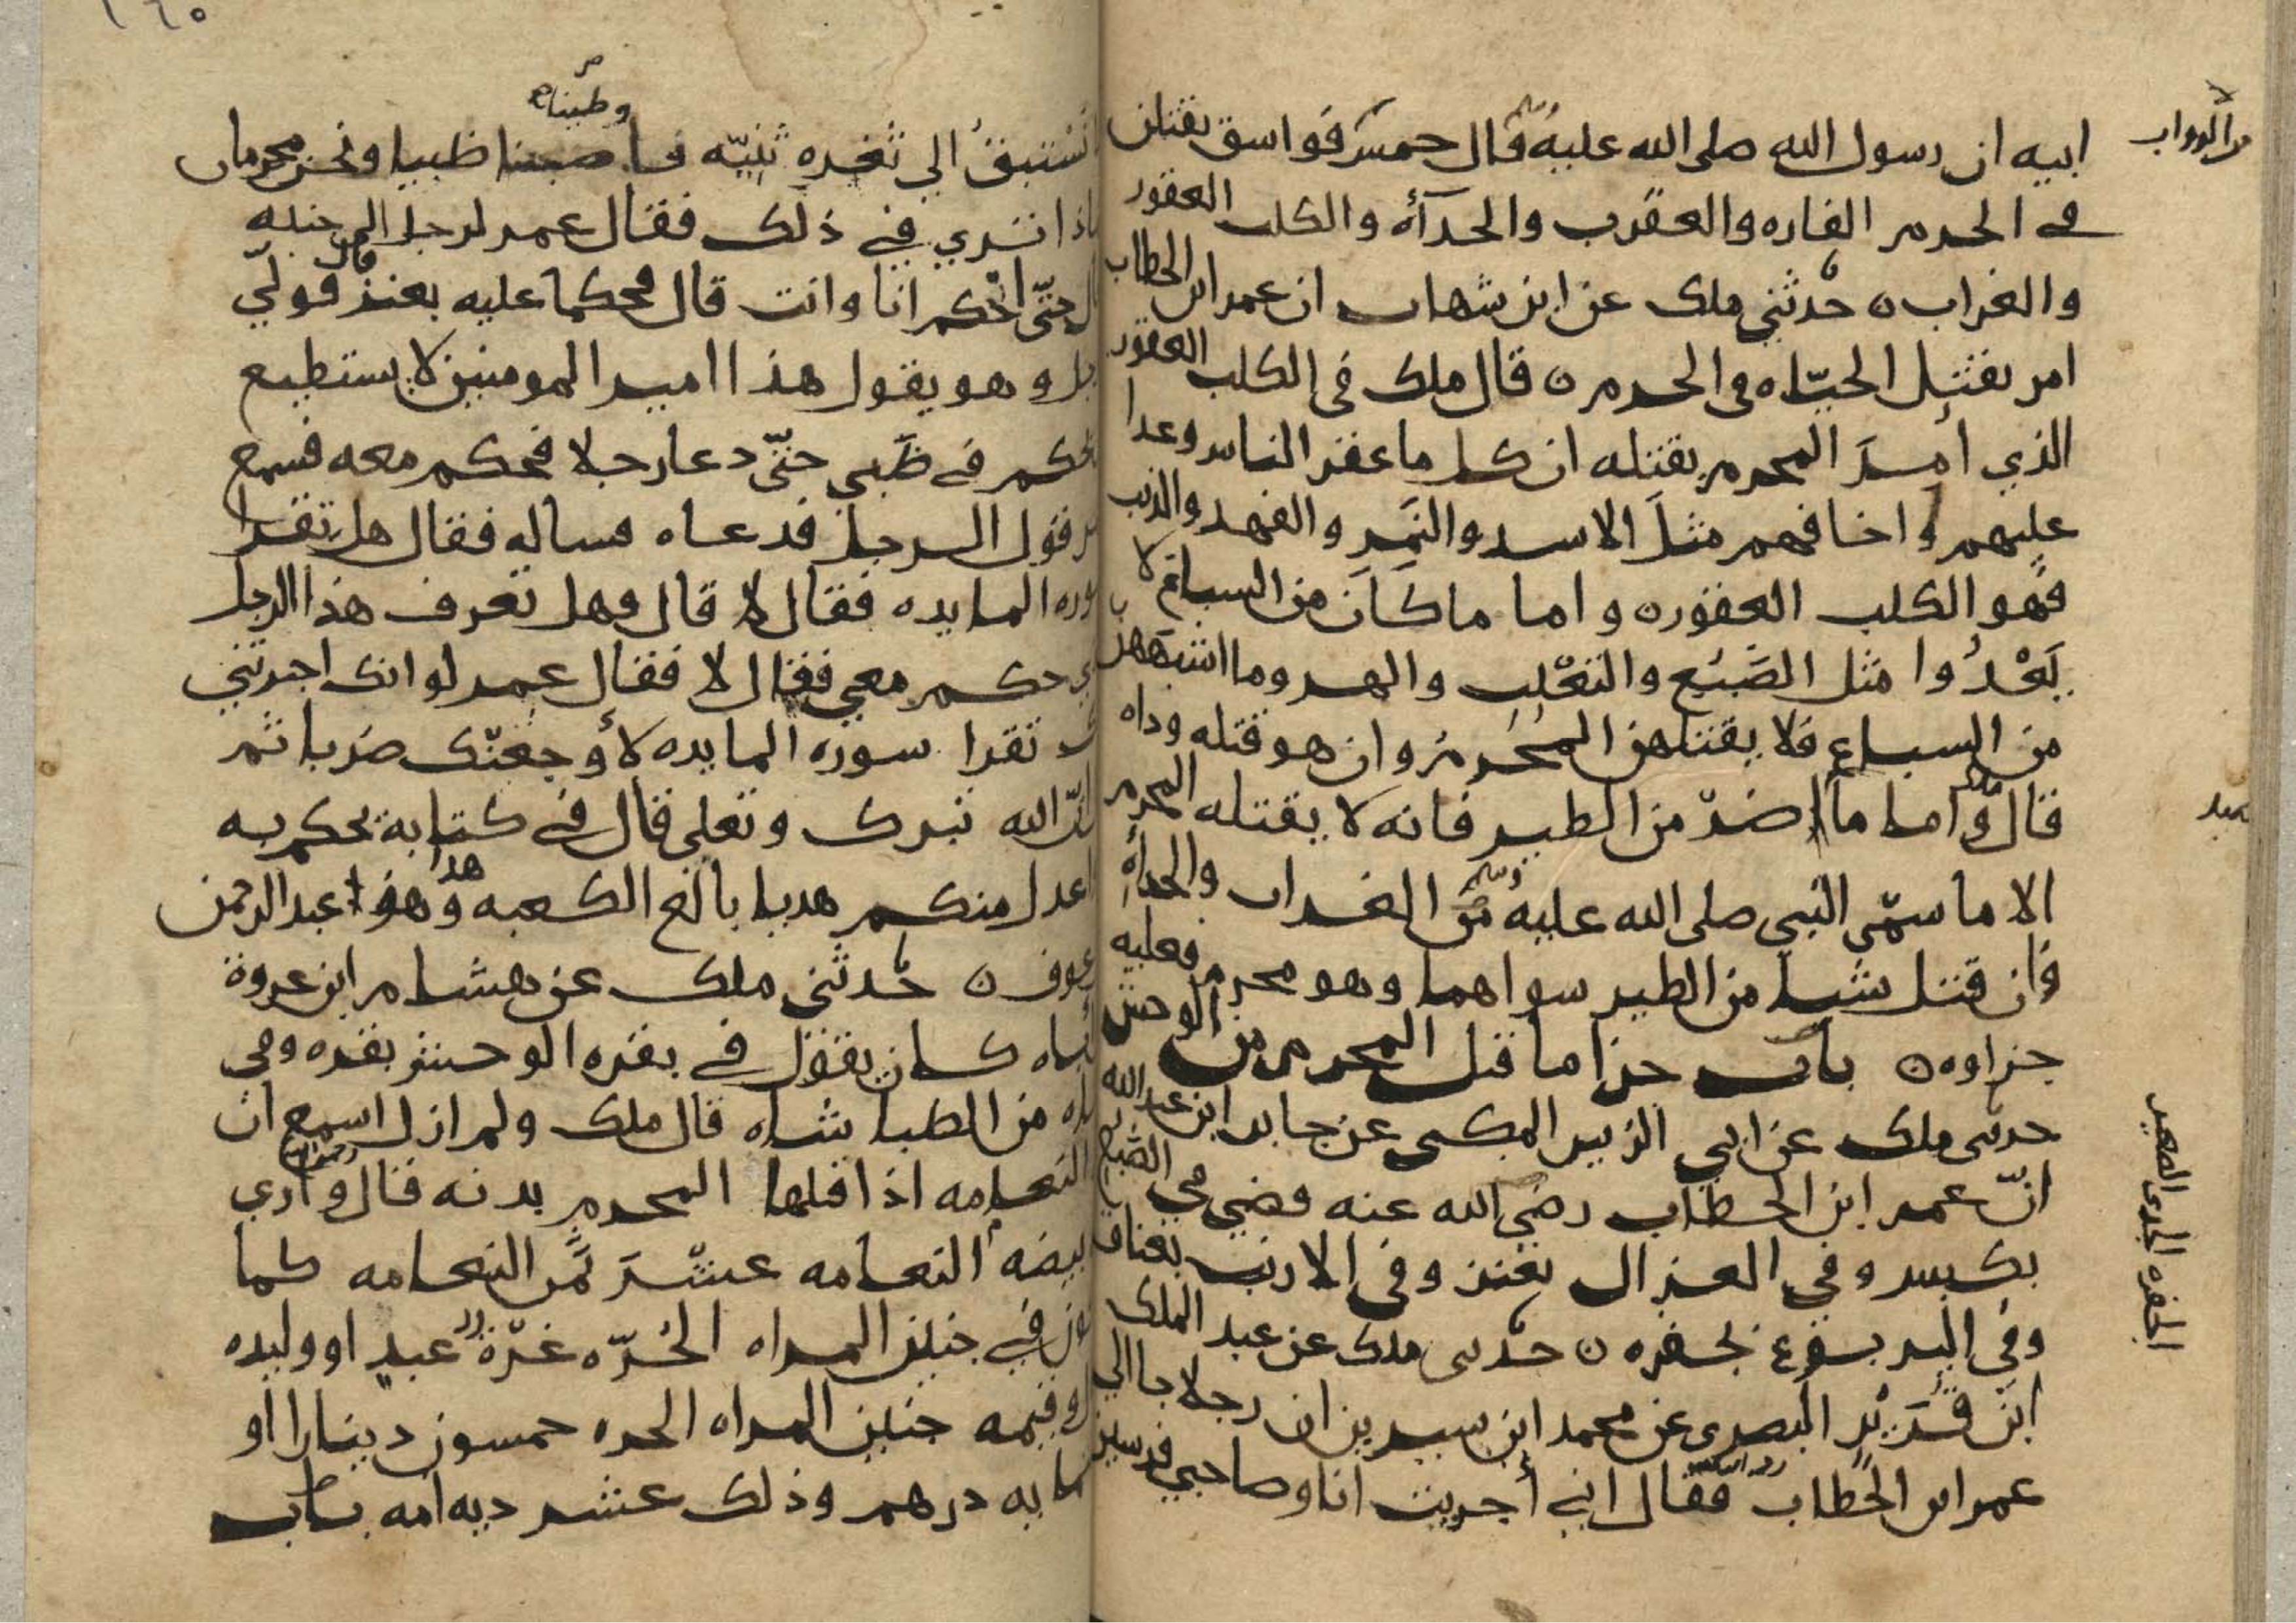 ابيه ان رسول الله صلى الله عليه وسلم قال خمس فواسق يقتلن
من الدواب
في الحرم الفاره والعقرب والحدآة والكلب العقور
والغراب ۝ حدثني ملك عن ابن شهاب ان عمر ابن الخطاب
امر بقتل الحيّاه في الحرم ۝ قال ملك في الكلب العقور
الذي أمِرَ المحرم بقتله ان كل ما عقر الناس وعدا
عليهم واخافهم مثلَ الاسد والنَمِرِ والفهد والذيب
فهو الكلب العقور ۝ واما ما كان من السباع لا
يَعْدُوا مثل الضَبُع والثعْلب والهر وما اشبههن
من السباع فلا يقتلهن المُحْرِم وان هو قتله وداه
قال ملك واما ما ضرّ من الطير فانه لا يقتله المحرم
الا ما سمّى النبي صلى الله عليه وسلم من الغراب والحدأة
وَان قتل شيا من الطير سواهما وهو محرم فعليه
جزاوه ۝ باب جزا ما قتل المحرم من الوحش
حدثني ملك عن ابي الزبير المكي عن جابر ابن عبد الله
انّ عمر ابن الخطاب رضي الله عنه قضى في الضبع
بكبش وفي الغزال بعنز وفي الارنب بعناق
وفي اليربوع بجفره ۝ حدثني ملك عن عبد الملك
الجفره الجدي الصغير
ابن قُرَيْر البصري عن محمد ابن سيرين ان رجلا جا الي
عمر ابن الخطاب فقال اني أجريت انا وصاحبي فرسين
نستبق الي ثغره ثنيّه فاصبنا ظبيا ونحن محرمان
وطينا
اذا تري في ذلك فقال عمر لرجل الى جنبه
حتّى احْكم انا وانت قال فحكما عليه بعنز قال فولّي
وهو يقول هذا امير المومنين لا يستطيع
يحكم في ظبي حتّى دعا رجلا فحكم معه فسمع
قول الرجل فدعاه فساله فقال هل تقرا
سوره المايده فقال لا قال وهل تعرف هذا الرجل
حكم معي فقال لا فقال عمر لو انك اخبرتني
تقرا سورة المايده لأوجعتك ضربا ثم
انّ الله تبرك وتعلى قال في كتابه يحكم به
اعدل منكم هديا بالغ الكعبه وهذا عبد الرحمن
عوف ۝ حدثني ملك عن هشام ابن عروة
اباه كان يقول في بقره الوحش بقره وفي
شاه من الظبا شاه قال ملك ولم ازل اسمع ان
النعامه اذا قتلها المحرم بدنه قال واري
بيضه النعامه عشْرَ ثمَن النعامه كما
في جنين المراه الحُرّه غرّة عبدٍ او وليده
وقيمه جنين المراه الحره خمسون دينارا او
مايه درهم وذلك عشر ديه امه باب